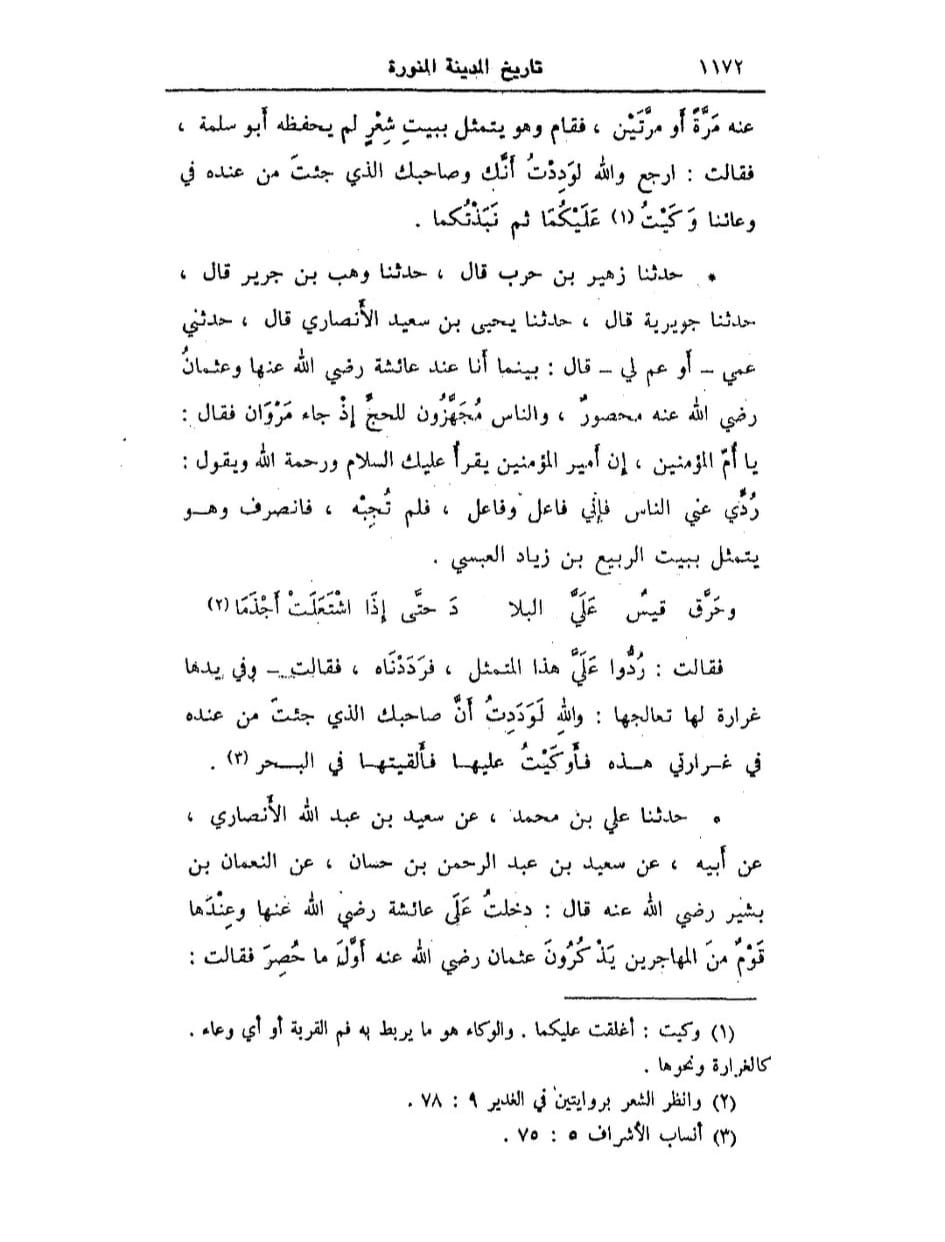 ١١٧٢ تاريخ المدينة المنورة
عنه مَرَّةً أو مرَّتَيْن ، فقام وهو يتمثل ببيتِ شِعْرٍ لم يحفظه أبو سلمة ،
فقالت : ارجع والله لوَدِدْتُ أَنَّك وصاحبك الذي جئتَ من عنده في
وعائنا وَكَيْتُ (١) عَلَيْكُمَا ثم نَبَذْتُكما .
* حدثنا زهير بن حرب قال ، حدثنا وهب بن جرير قال ،
حدثنا جويرية قال ، حدثنا يحيى بن سعيد الأَنصاري قال ، حدثني
عمي – أو عم لي – قال : بينما أنا عند عائشة رضي الله عنها وعثمانُ
رضي الله عنه محصورٌ ، والناس مُجَهَّزُون للحجِّ إذْ جاء مَرْوَان فقال :
يا أُمّ المؤمنين ، إن أمير المؤمنين يقرأ عليك السلام ورحمة الله ويقول :
رُدِّي عني الناس فإنِّي فاعل وفاعل ، فلم تُجِبْه ، فانصرف وهو
يتمثل ببيت الربيع بن زياد العبسي .
وحَرَّق قيسٌ عَلَيَّ البلا دَ حتَّى إِذَا اشْتَعَلَتْ أَجْذَمَا (٢)
فقالت : رُدُّوا عَلَيَّ هذا المتمثل ، فرَدَدْنَاه ، فقالت – وفي يدها
غرارة لها تعالجها : واللهِ لَوَدَدِتُ أَنَّ صاحبك الذي جئتَ من عنده
في غرارتي هذه فأَوكَيْتُ عليها فأَلقيتها في البحر (٣) .
* حدثنا علي بن محمد ، عن سعيد بن عبد الله الأَنصاري ،
عن أَبيه ، عن سعيد بن عبد الرحمن بن حسان ، عن النعمان بن
بشير رضي الله عنه قال : دخلتُ عَلَى عائشة رضي الله عنها وعِنْدَها
قَوْمٌ منَ المهاجرين يَذْكُرُونَ عثمان رضي الله عنه أَوَّلَ ما حُصِرَ فقالت :
(١) وكيت : أغلقت عليكما . والوكاء هو ما يربط به فم القربة أو أي وعاء .
كالغرارة ونحوها .
(٢) وانظر الشعر بروايتين في الغدير ٩ : ٧٨ .
(٣) أنساب الأشراف ٥ : ٧٥ .